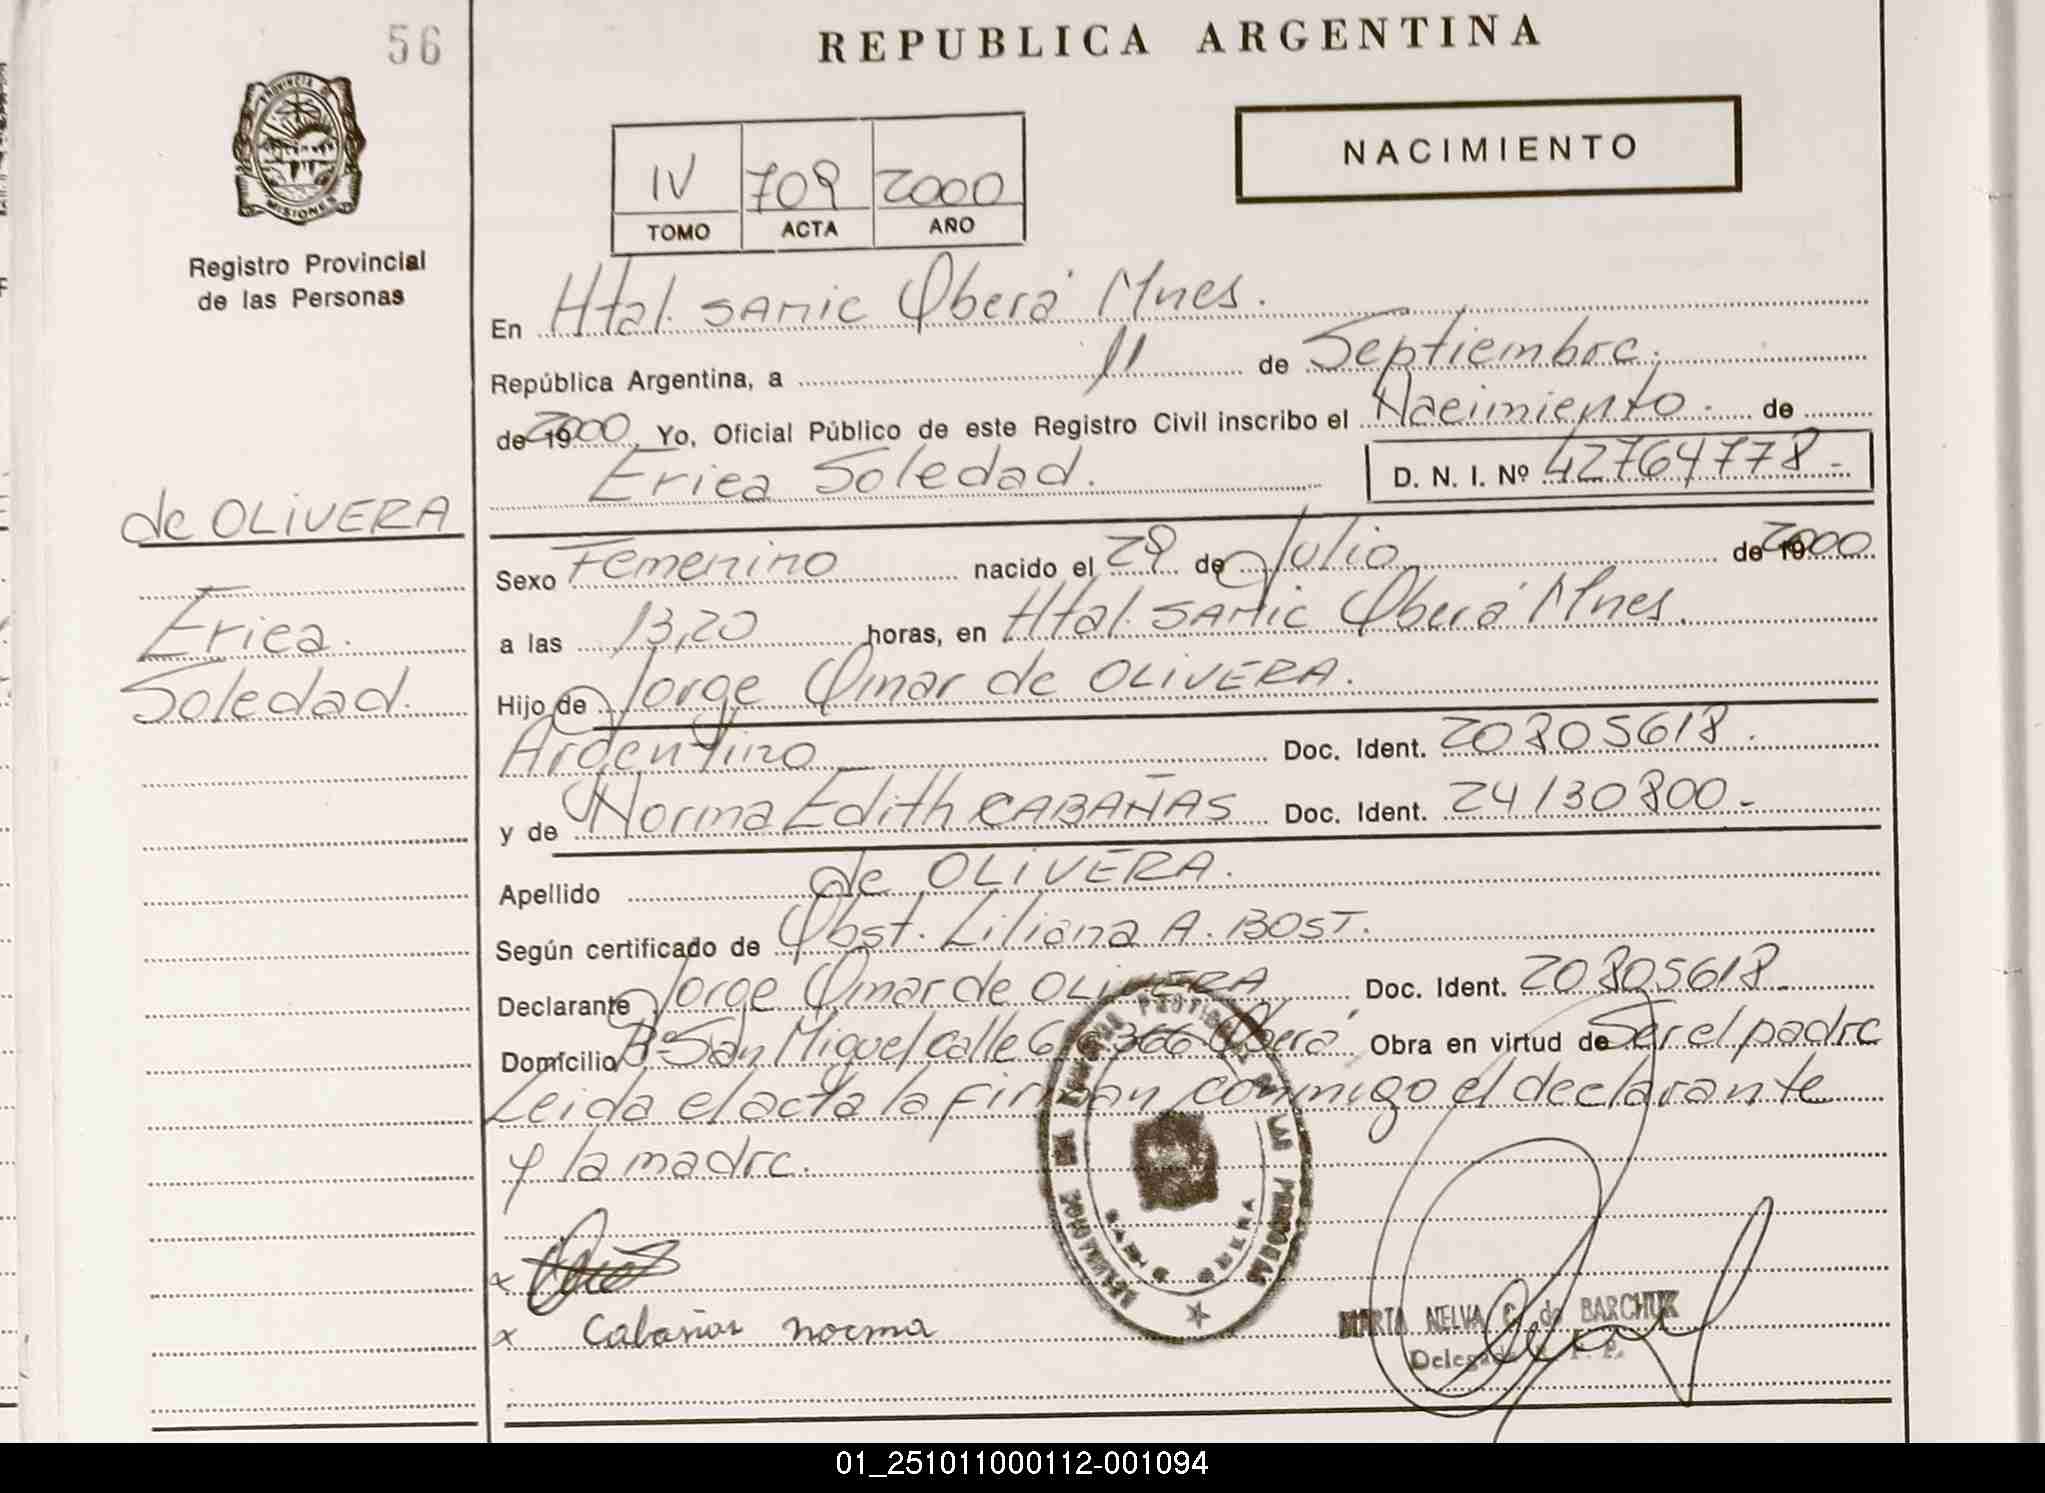 56
REPUBLICA ARGENTINA
PROVINCIA DE
MISIONES
Registro Provincial
de las Personas
IV 709 2000
TOMO ACTA AÑO
NACIMIENTO
En Htal. SAMIC Oberá Mnes.
República Argentina, a 11 de Septiembre.
de 2000 Yo, Oficial Público de este Registro Civil inscribo el Nacimiento. de
Erica Soledad. D. N. I. Nº 42764778-
de OLIVERA
Erica
Soledad.
Sexo Femenino nacido el 29 de Julio de 2000
a las 13,20 horas, en Htal. SAMIC Oberá Mnes.
Hijo de Jorge Omar de OLIVERA.
Argentino Doc. Ident. 20805618.
y de Norma Edith CABAÑAS Doc. Ident. 24130800-
Apellido de OLIVERA.
Según certificado de Obst. Liliana A. BOST.
Declarante Jorge Omar de OLIVERA Doc. Ident. 20805618-
Domicilio Bº San Miguel calle 6 366 Oberá Obra en virtud de Ser el padre
Leida el acta la firman conmigo el declarante
y la madre.
x
x Cabañas norma
MARTA NELVA C. de BARCHUK
Delegada
01_251011000112-001094